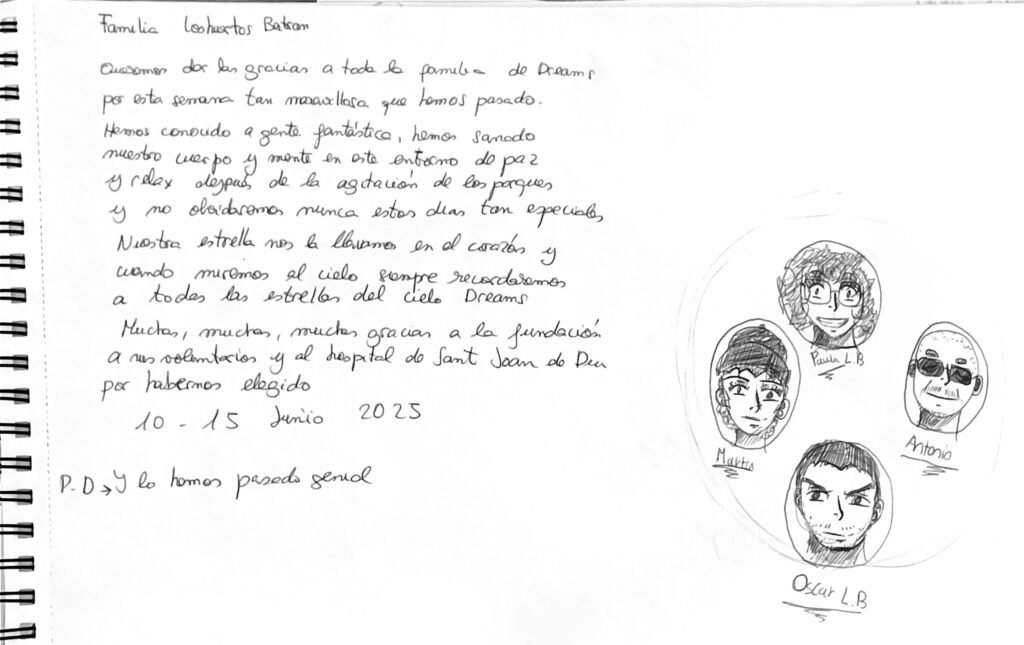 Familia Loshuertos Batran
Queremos dar las gracias a toda la familia de Dreams
por esta semana tan maravillosa que hemos pasado.
Hemos conocido a gente fantástica, hemos sanado
nuestro cuerpo y mente en este entorno de paz
y relax después de la agitación de los parques
y no olvidaremos nunca estos dias tan especiales
Nuestra estrella nos la llevamos en el corazón y
cuando miremos al cielo siempre recordaremos
a todas las estrellas del cielo Dreams
Muchas, muchas, muchas gracias a la fundación
a sus voluntarios y al hospital de Sant Joan de Deu
por habernos elegido
10 - 15 Junio 2025
P.D → Y lo hemos pasado genial
Paula L.B
Antonio
Oscar L.B